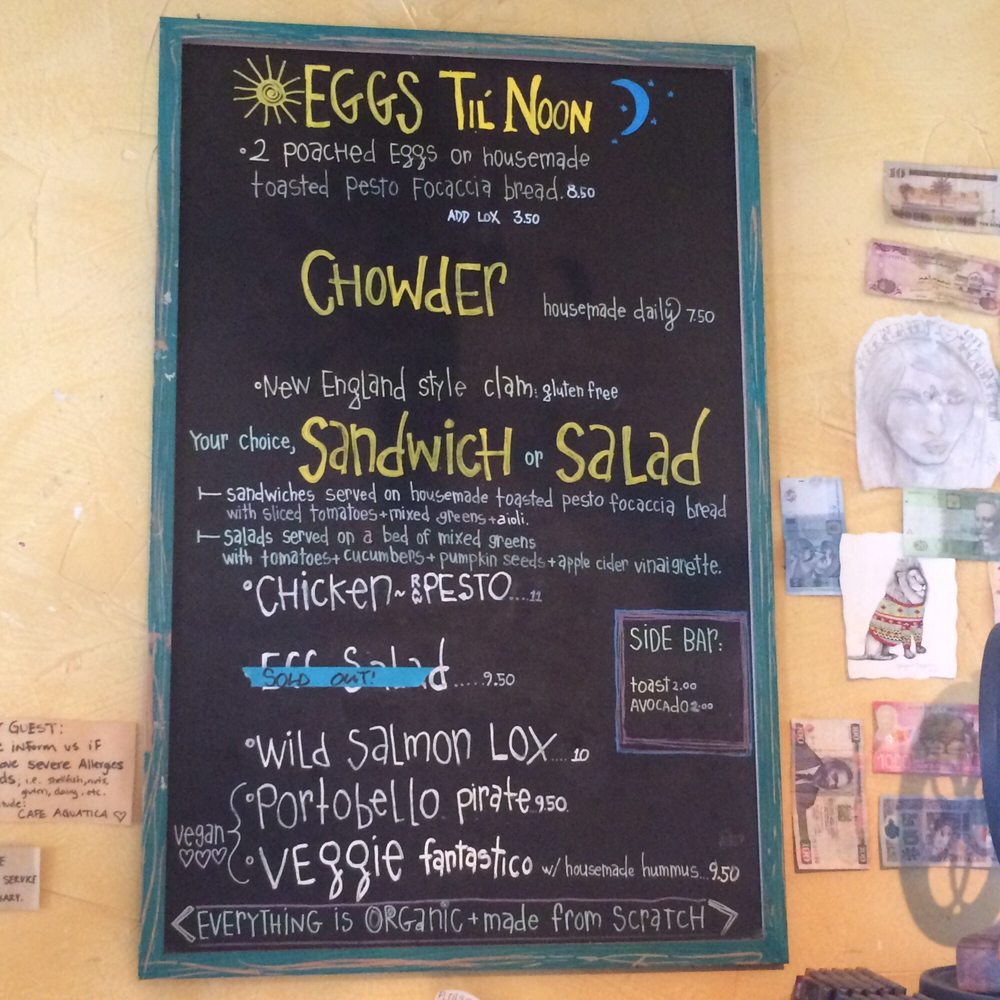 EGGS TIL' NOON
• 2 POACHED EGGS on housemade
toasted Pesto Focaccia bread. 8.50
ADD LOX 3.50
CHOWDER
housemade daily 7.50
• New England style clam: gluten free
Your choice, Sandwich or Salad
sandwiches served on housemade toasted pesto focaccia bread
with sliced tomatoes + mixed greens + aioli.
salads served on a bed of mixed greens
with tomatoes + cucumbers + pumpkin seeds + apple cider vinaigrette.
• CHICKEN ~ PESTO.... 11
EGG Salad ..... 9.50
SOLD OUT!
SIDE BAR:
toast 2.00
AVOCADO 2.00
• Wild Salmon LOX.... 10
• Portobello pirate 9.50
vegan
• Veggie fantastico w/ housemade hummus... 9.50
EVERYTHING is ORGanic + made from ScratcH
GUEST:
inform us if
severe Allergies
i.e. shellfish, nuts,
gluten, dairy, etc.
CAFE AQUATICA
SERVICE
10
100